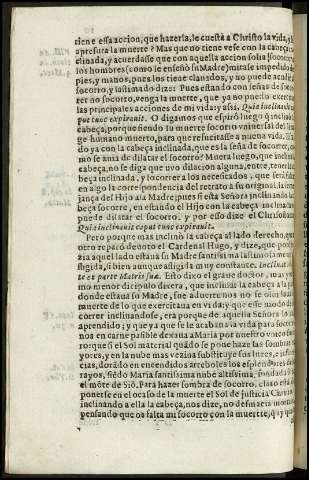 tiene essa accion, que hazerla, le cuesta a Christo la vida, y le
apresura la muerte? Mas que no tiene vese con la cabeça in
clinada, y acuerdasse que con aquella accion solia socorrer a
los hombres (como le enseñò su Madre) mirase impedido de
pies, y manos, pues los tiene clauados, y no puede acudir al
socorro, y lastimado dize: Pues estando con señas de socor
rer no socorro, venga la muerte, que ya no puedo exercitar
las principales acciones de mi vida: y assi. Quia inclinauit ca
put tunc expirauit. O digamos que espirò luego q̃ inclinò la
cabeça, porque siendo su muerte socorro vniuersal del lina
ge humano muerto, para que resucitasse a nueua vida, sien
do ya con la cabeça inclinada, que es la seña de socorrer, co
mo se auia de dilatar el socorro? Muera luego, q̃ne inclinada la
cabeça, no se diga que vuo dilacion alguna, entre, tener la ca
beça inclinada, y socorrer a los necessitados, que serà faltar
en algo la correspondencia del retrato a su original, la seme
jança del Hijo a la Madre; pues si esta Señora inclinando la ca
beça socorre, en estando el Hijo con la cabeça inclinada no
puede dilatar el socorro, y por esso dize el Chrisostomo
Quia inclinauit caput tunc expirauit.
Pero porque mas inclinò la cabeça al lado derecho, que al
otro reparò deuoto el Cardenal Hugo, y dize, que porque a
zia aquel lado estaua su Madre santissima lastimosamente
afligida, si bien aunque afligida muy constante. Inclinauit
te ex parte Matris suæ. Esto dixo el graue doctor, mas yo co
mo menor dicipulo dixera, que inclinar la cabeça a la parte
donde estaua su Madre, fue aduertirnos no se oluidaua en la
muerte de lo que exercitana en vida; y que esse modo de so
correr inclinandose, era porque de aquella Señora lo auia
aprendido; y que ya que se le acabaua la vida para socorrer
nos en carne passible dexaua a Maria por nuestro voto socor
ro: que si el Sol material quãdo se pone haze las sombras ma
yores, y en la nube mas vezina substituye sus luzes, e influen
cias, dorado en encendidos arreboles los esplendores de sus
rayos, siẽdo Maria santissima nube altissima, fundada sobre
el mõte de Siõ. Para hazer sombra de socorro, claro està que al
ponerse en el ocaso de la muerte el Sol de justicia Christo
inclinando a ella la cabeça, nos dize, no desmaieis mortales,
pensando que os falta mi socorro con la muerte, q̃ a